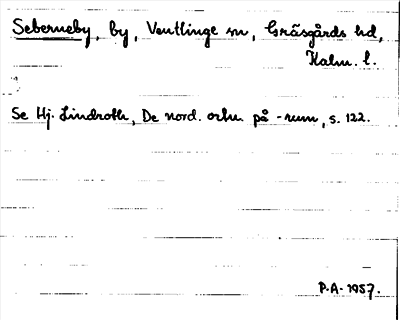 Seberneby, by, Ventlinge sn, Gräsgårds hd,
Kalm. l.
Se Hj. Lindroth, De nord. ortn. på -rum, s. 122.
P.A. 1957.